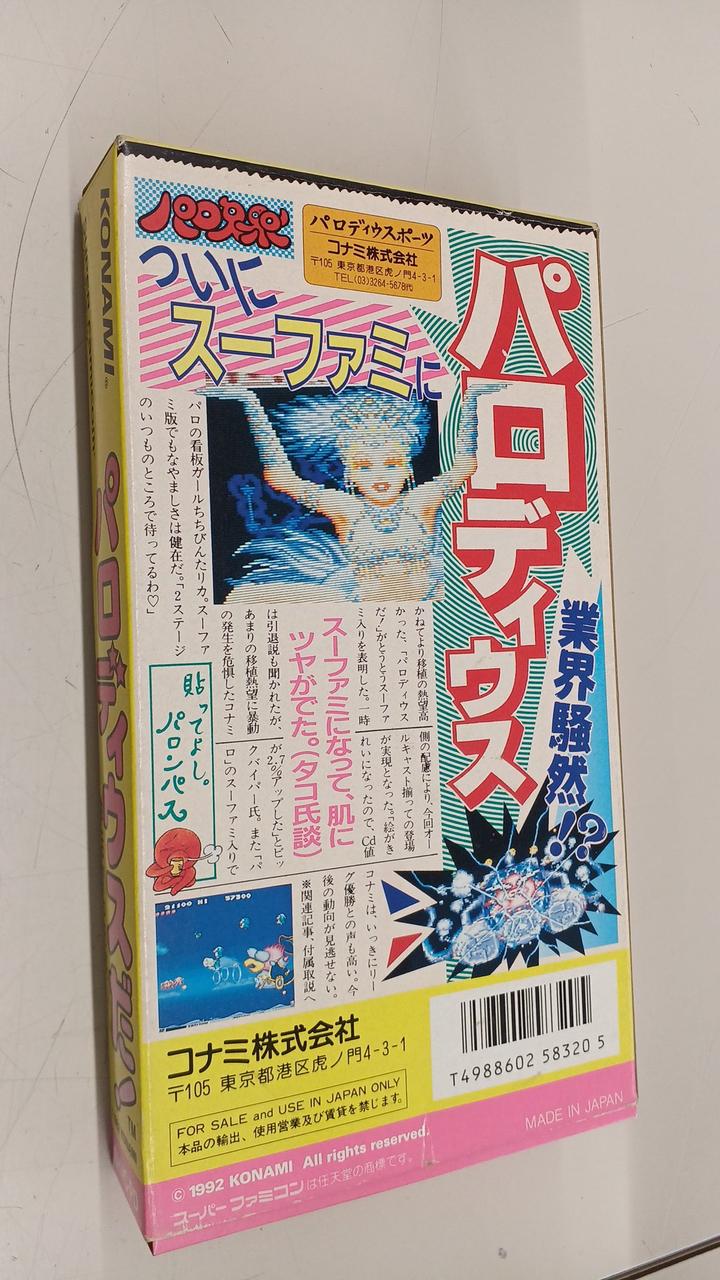 パロ夫界
パロディウスポーツ
コナミ株式会社
〒105 東京都港区虎ノ門4-3-1
TEL(03)3264-5678代
ついに
スーファミに
パロディウス
業界騒然!?
パロの看板ガールちちびんたリカ。スーファ
ミ版でもなやましさは健在だ。「2ステージ
のいつものところで待ってるわ♡」
かねてより移植の熱望高
かった、「パロディウス
だ!」がとうとうスーファ
ミ入りを表明した。一時
は引退説も聞かれたが、
あまりの移植熱望に暴動
の発生を危惧したコナミ
側の配慮により、今回オー
ルキャスト揃っての登場
が実現となった。「絵がき
れいになったので、Cd値
が.7%アップした」とビッ
クバイパー氏。また「パ
ロ」のスーファミ入りで
コナミは、いっきにリー
グ優勝との声も高い。今
後の動向が見逃せない。
※関連記事、付属取説へ
スーファミになって、肌に
ツヤがでた。(タコ氏談)
貼ってよし。
パロンパス
21100 HI 57300
コナミ株式会社
〒105 東京都港区虎ノ門4-3-1
FOR SALE and USE IN JAPAN ONLY
本品の輸出、使用営業及び賃貸を禁じます。
T4988602 58320 5
MADE IN JAPAN
© 1992 KONAMI All rights reserved.
スーパーファミコンは任天堂の商標です。
KONAMI®
パロディウスだ!
TM